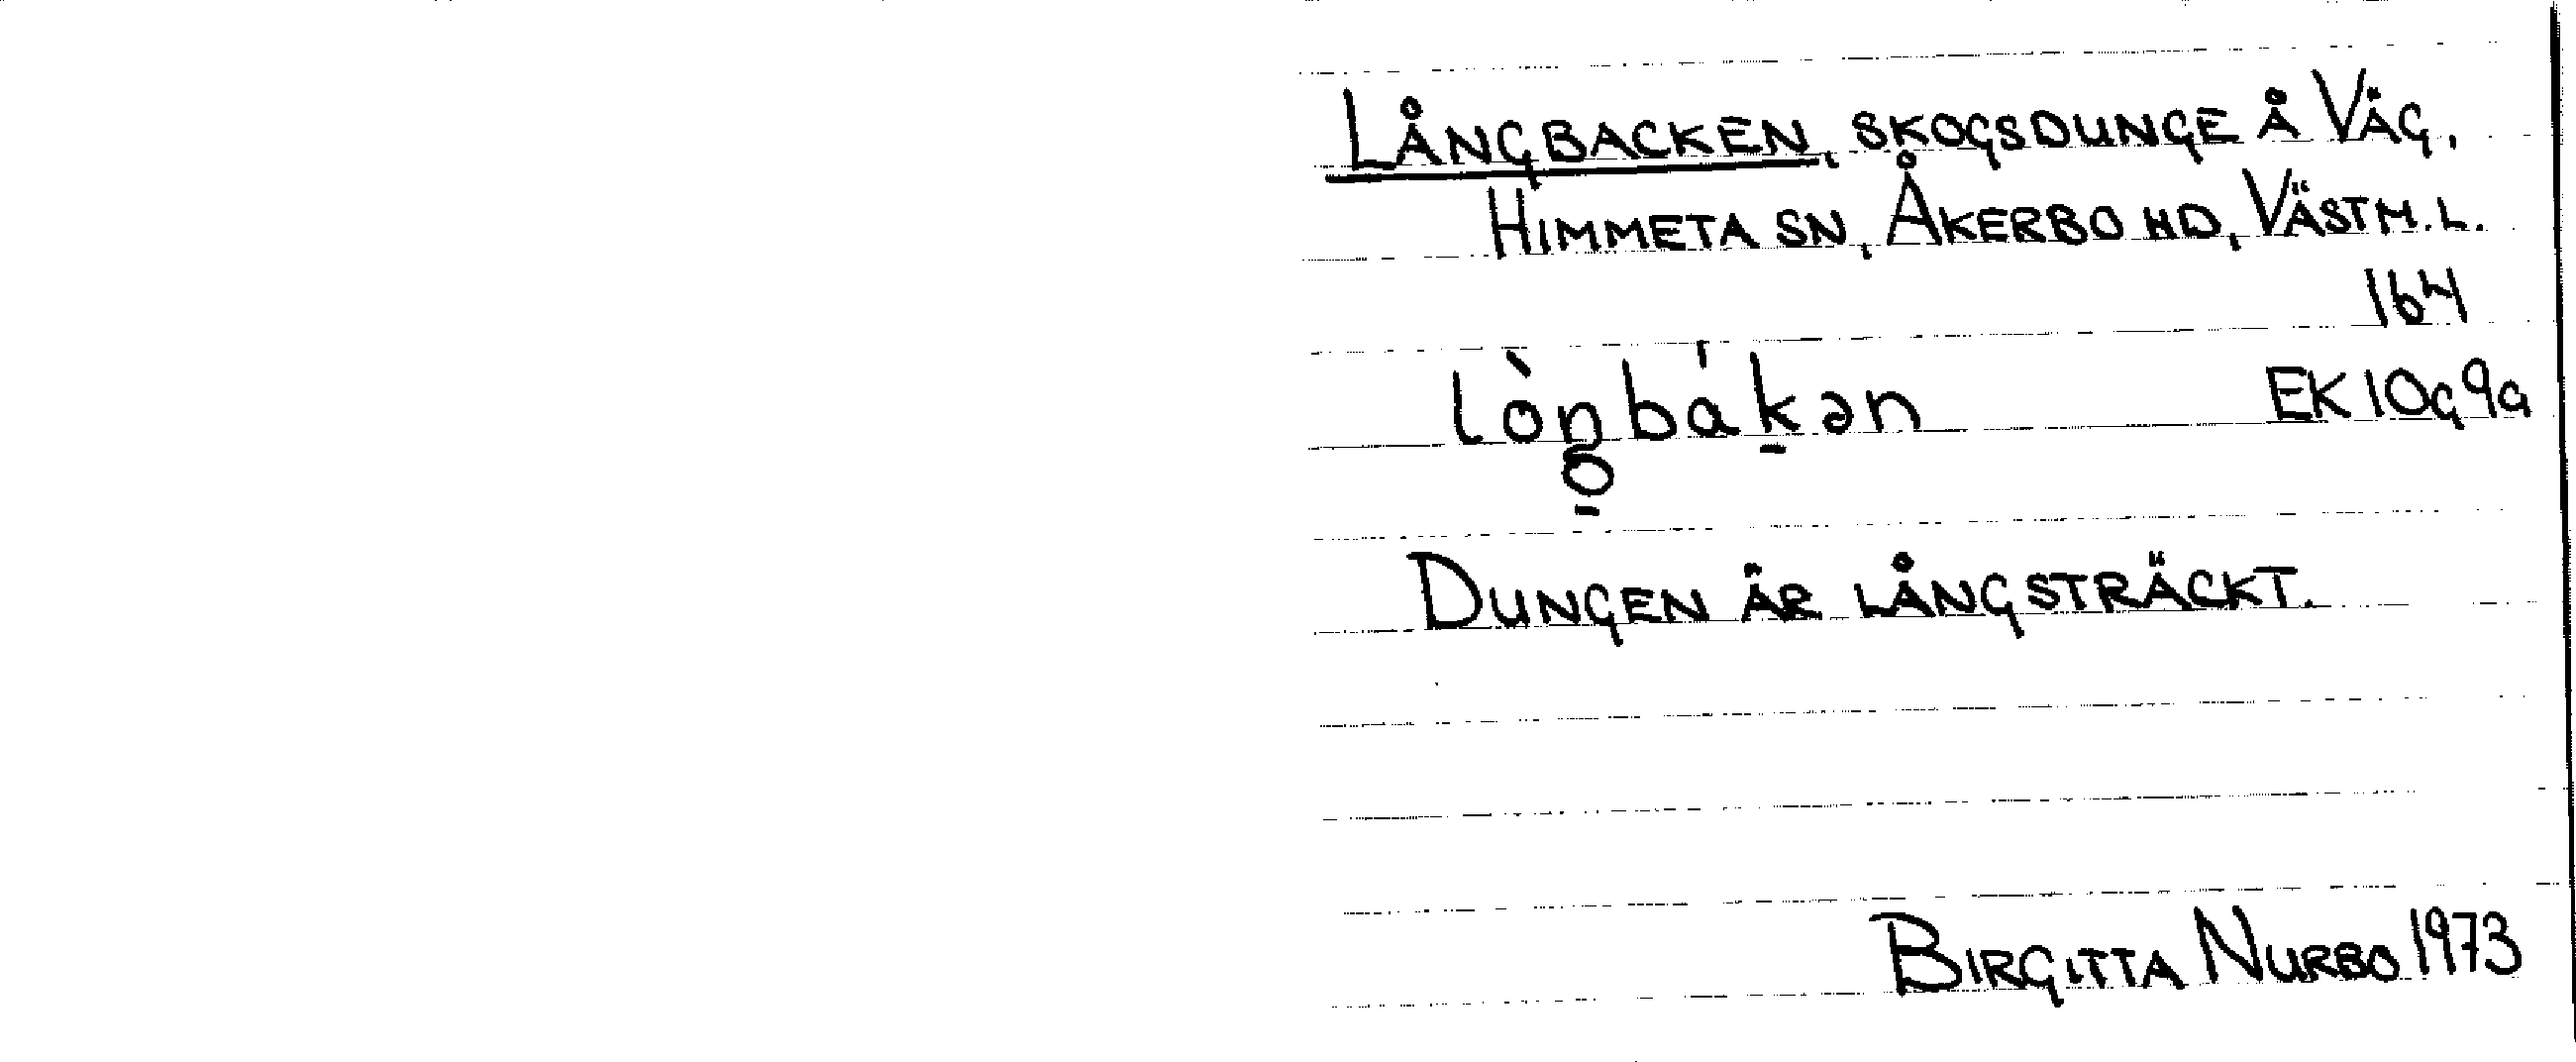 LÅNGBACKEN, SKOGSDUNGE Å VÄG,
HIMMETA SN, ÅKERBO HD, VÄSTM.L.
164
lòn̥̱bákən EK 10G9a
DUNGEN ÄR LÅNGSTRÄCKT.
BIRGITTA NURBO 1973